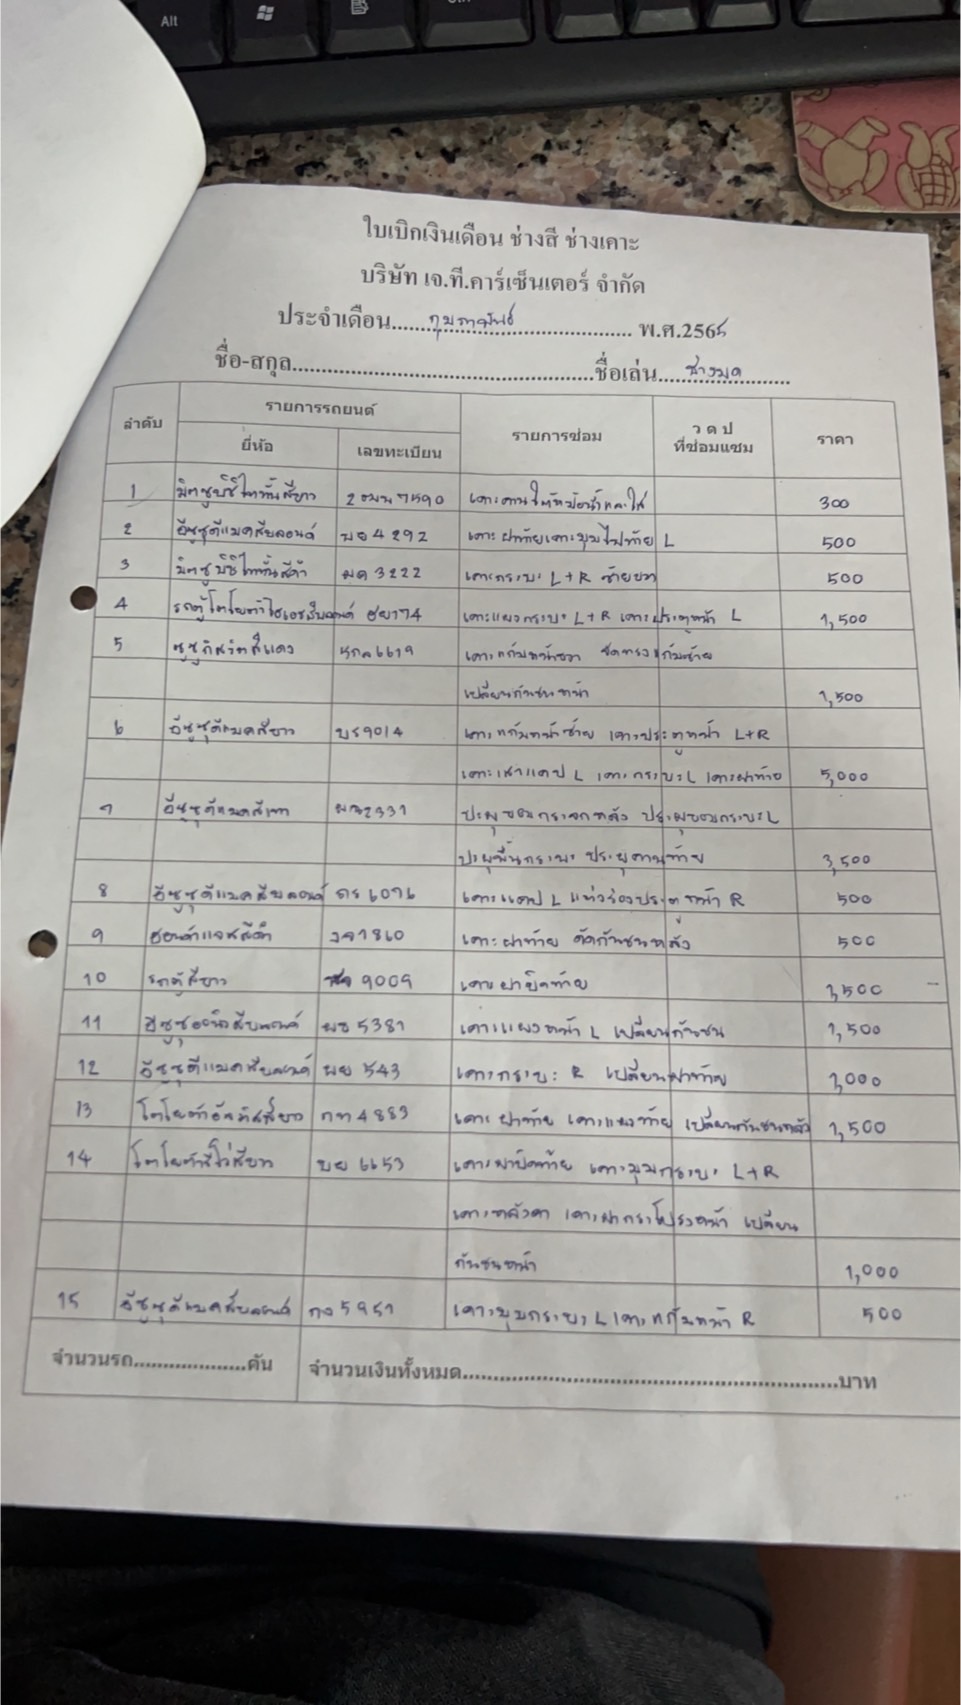 Alt
ใบเบิกเงินเดือน ช่างสี ช่างเคาะ
บริษัท เจ.ที.คาร์เซ็นเตอร์ จำกัด
ประจำเดือน....กุมภาพันธ์.... พ.ศ.2565
ชื่อ-สกุล....................ชื่อเล่น....ช่างมด....
ลำดับ รายการรถยนต์ รายการซ่อม ว ด ป ที่ซ่อมแซม ราคา
ยี่ห้อ เลขทะเบียน
1 มิตซูบิชิไททั้นสีขาว 2ฒน7590 เคาะคานใต้หม้อน้ำและใส่ 300
2 อีซูซุดีแมคสีบลอนด์ 4292 เคาะฝาท้ายเคาะมุมไฟท้าย L 500
3 มิตซูบิชิไททั้นสีดำ มค 3222 เคาะกระบะ L+R ซ้ายขวา 500
4 รถตู้โตโยต้าไฮเอซสีบลอนด์ ฮย174 เคาะแผงกระบะ L+R เคาะประตูหน้า L 1,500
5 ซูซูกิสวิตสีแดง 6619 เคาะแก้มหน้าขวา แก้มซ้าย
เปลี่ยนกันชนหน้า 1,500
6 อีซูซุดีแมคสีขาว บร9014 เคาะแก้มหน้าซ้าย เคาะประตูหน้า L+R
เคาะเสาแคป L เคาะกระบะL เคาะฝาท้าย 5,000
7 อีซูซุดีแมคสีเทา 2331 ปะผุขอบกระจกหลัง ปะผุขอบกระบะL
ปะผุพื้นกระบะ ปะผุคานท้าย 3,500
8 อีซูซุดีแมคสีบลอนด์ 6076 เคาะแคป L แนวร่องประตูหน้า R 500
9 ฮอนด้าแจสสีดำ 1860 เคาะฝาท้าย ดัดกันชนหลัง 500
10 รถตู้สีขาว 9009 เคาะฝาปิดท้าย 1,500
11 อีซูซุ สีบลอนด์ ผธ 5381 เคาะแผงหน้า L เปลี่ยนกันชน 1,500
12 อีซูซุดีแมคสีบลอนด์ ผย 543 เคาะกระบะ R เปลี่ยนฝาท้าย 1,000
13 โตโยต้าอัลติสสีขาว กท4883 เคาะฝาท้าย เคาะแผงท้าย เปลี่ยนกันชนหลัง 1,500
14 โตโยต้ารีโว่สีขาว บย 6653 เคาะฝาปิดท้าย เคาะมุมกระบะ L+R
เคาะหลังคา เคาะฝากระโปรงหน้า เปลี่ยน
กันชนหน้า 1,000
15 อีซูซุดีแมคสีบลอนด์ กง5951 เคาะมุมกระบะ L เคาะแก้มหน้า R 500
จำนวนรถ....................คัน จำนวนเงินทั้งหมด....................บาท